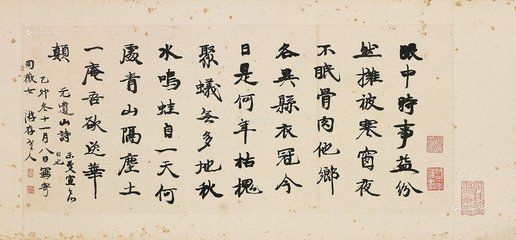 眼中時事益紛
然擁被寒窗夜
不眠骨肉他鄉
各異縣衣冠今
日是何年枯槐
聚蟻無多地秋
水鳴蛙自一天何
處青山隔塵土
一庵吾欲送華
顛
元遺山詩
乙卯冬十一月八日寫寄
老人